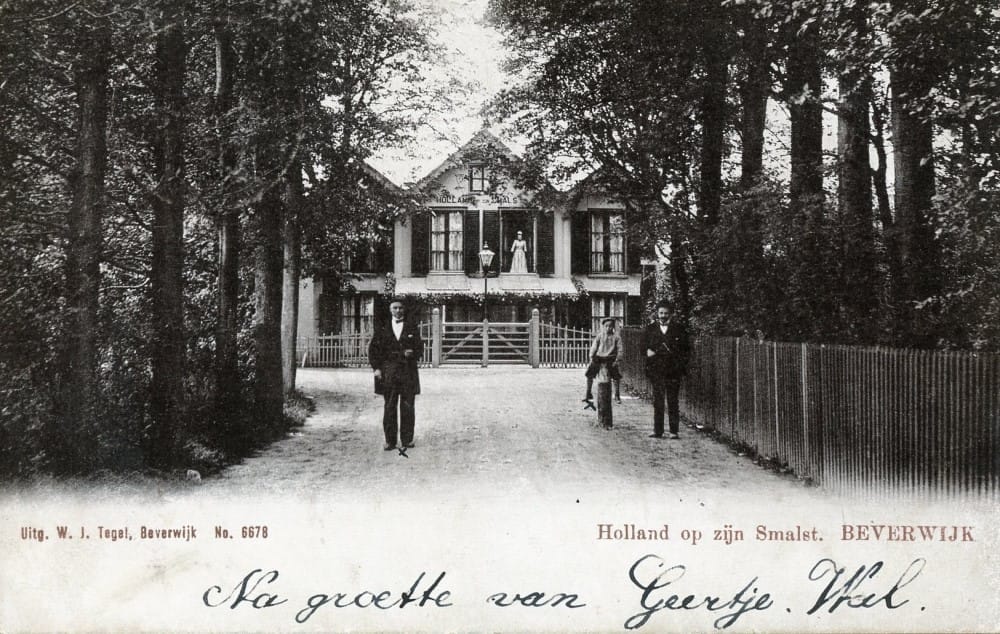 HOLLAND OP ZYN SMALST
Uitg. W. J. Tegel, Beverwijk No. 6678
Holland op zijn Smalst. BEVERWIJK
Na groette van Geertje. Wal.